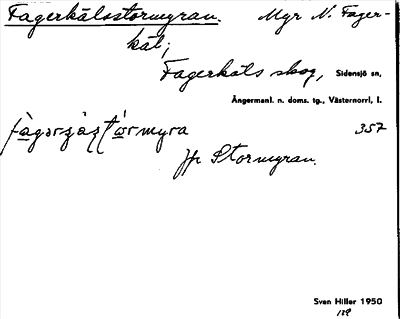 Fagerkälsstormyran. Myr N. Fager-
käl;
Fagerkäls skog, Sidensjö sn,
Ångermanl. n. doms. tg., Västernorrl, l.
357
Jfr Stormyran.
Sven Hiller 1950